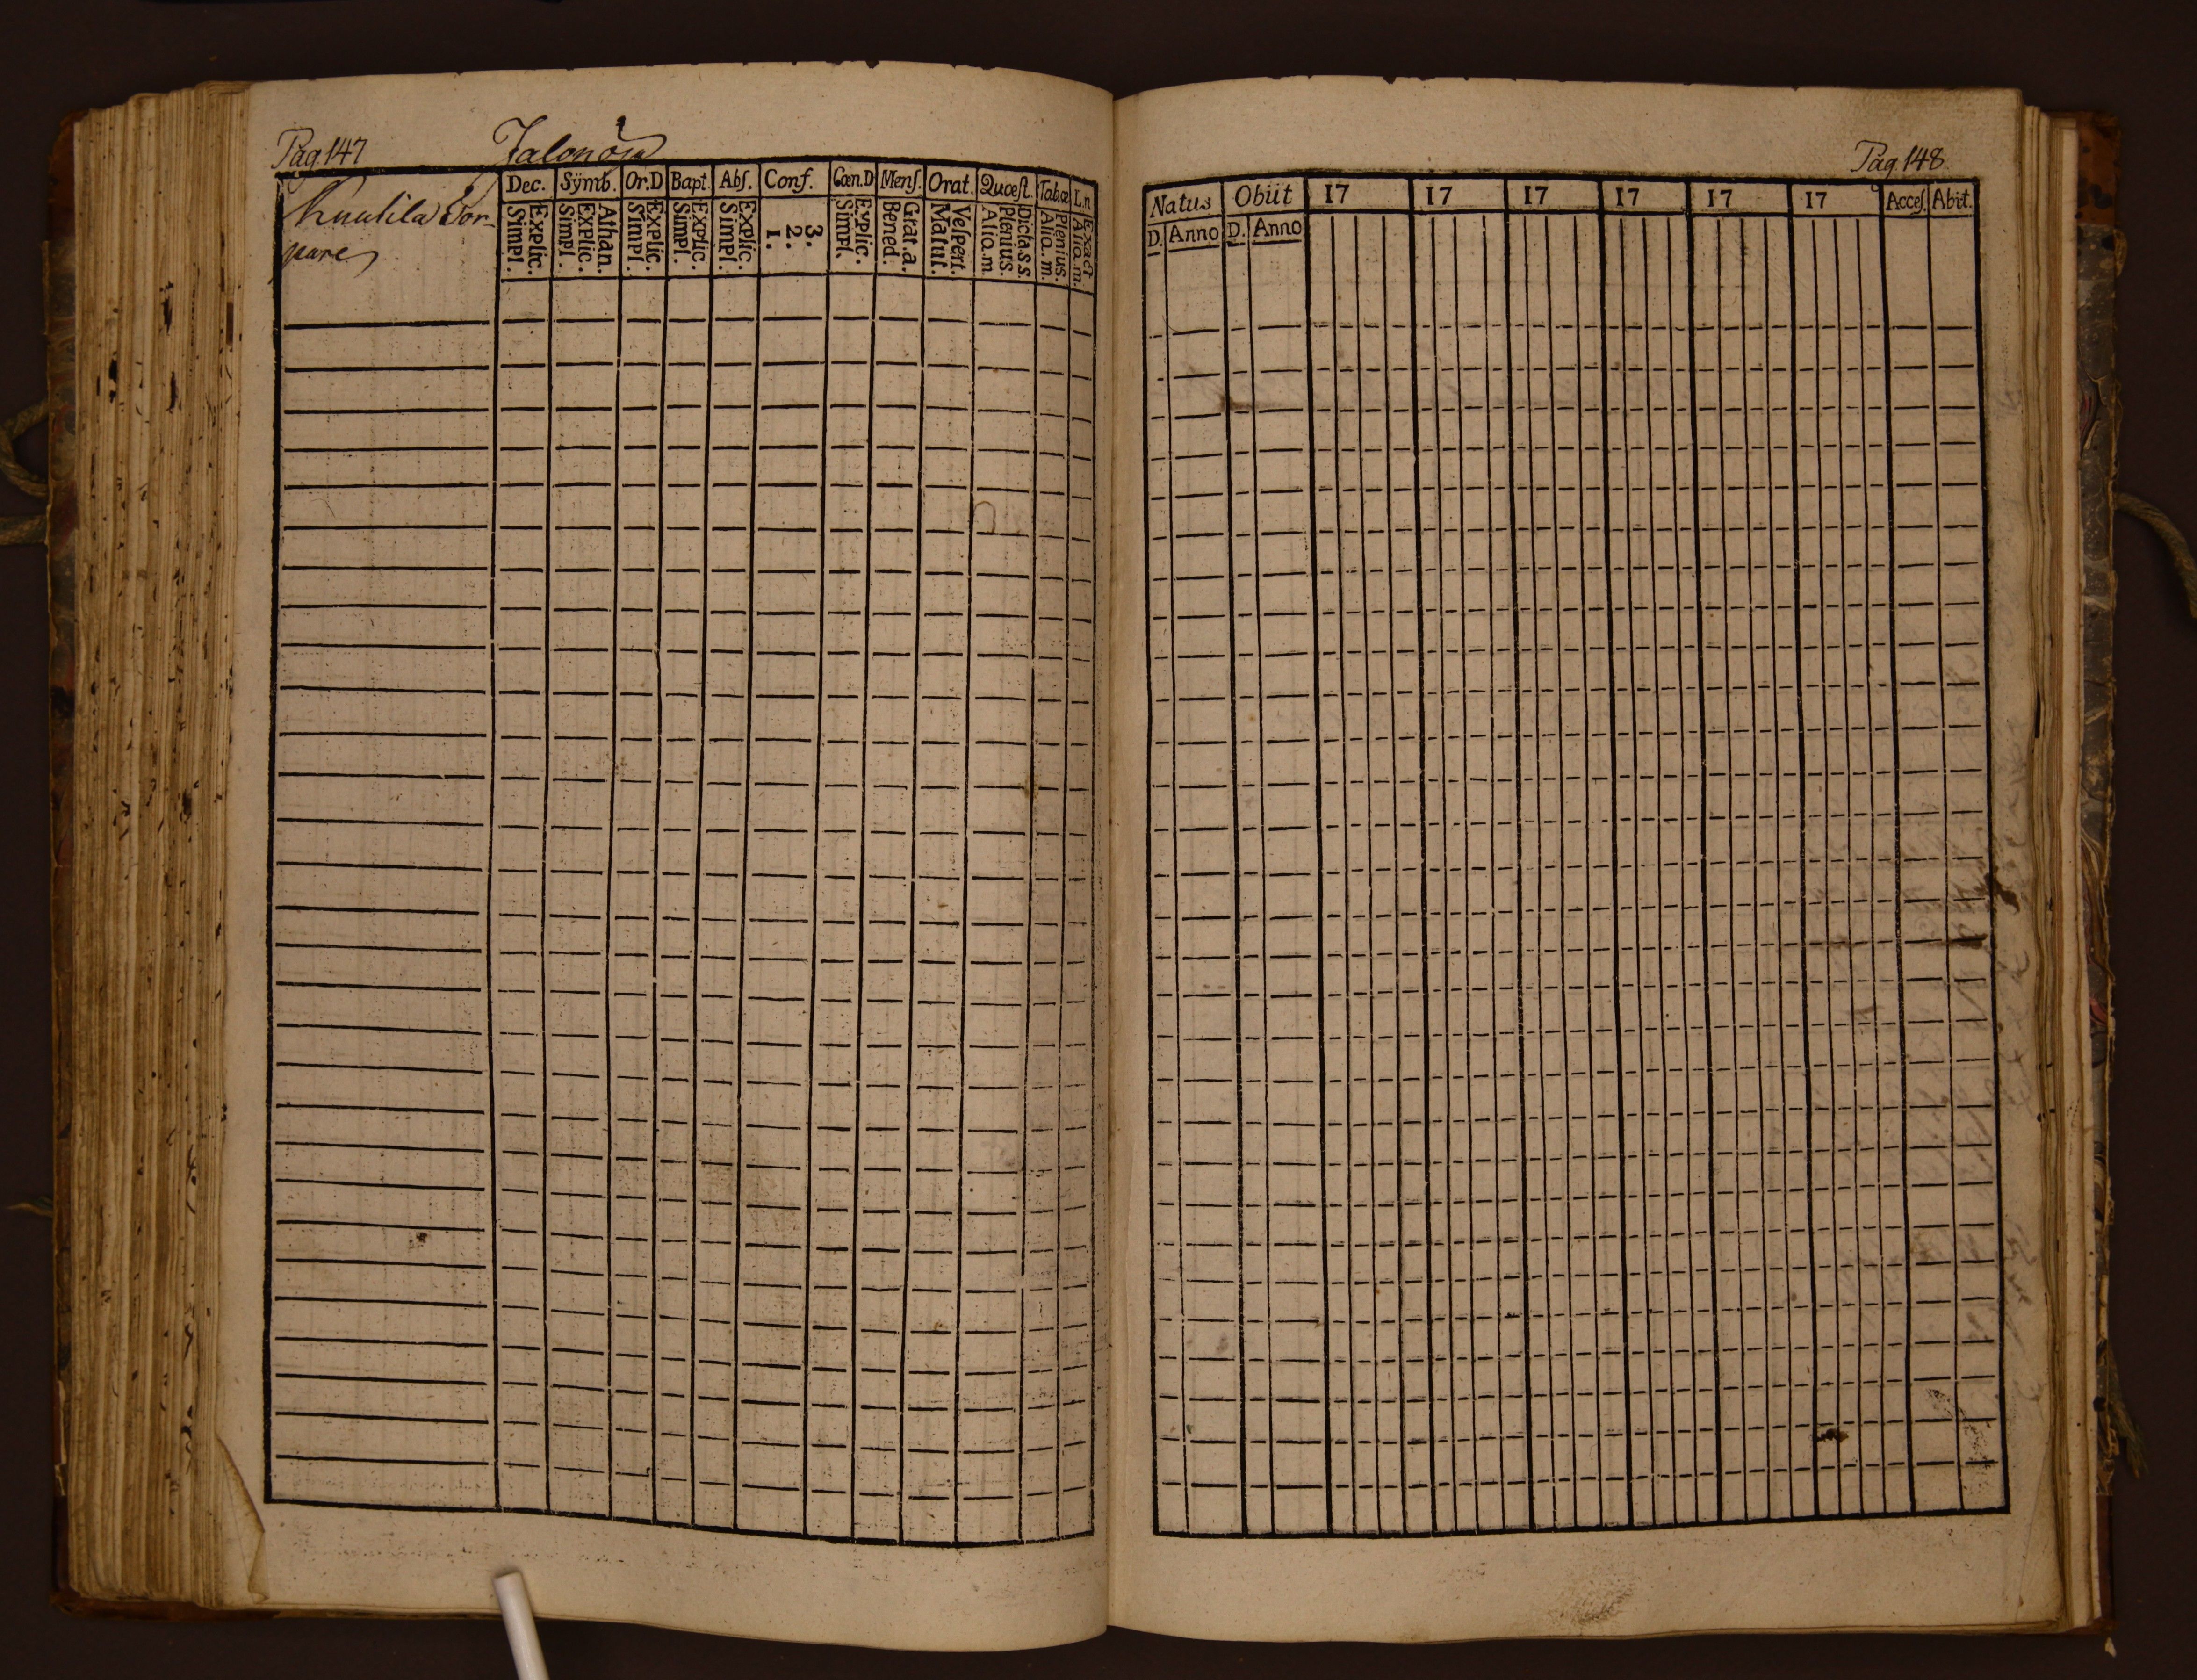 Pag. 147
Jalonoja
Knutila Tor-
pare
Dec. Sÿmb. Or.D Bapt. Abſ. Conf. Cœn.D Menſ. Orat. Quœſt. Tabœ L.n
Explic. Simpl. Athan. Explic. Simpl. Explic. Simpl. Explic. Simpl. Explic. Simpl. 3. 2. 1. Explic. Simpl. Grat.a. Bened. Veſpert. Matut. Dicta.s.s. Plenius. Aliq.m. Plenius. Aliq.m. Exact Aliq.m.
Pag. 148
Natus Obiit 17 17 17 17 17 17 Acceſ. Abit.
D. Anno D. Anno